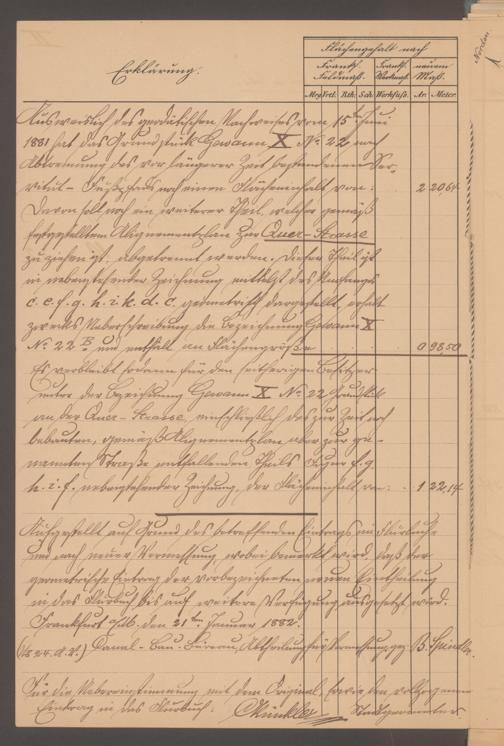 Norden
1
Erklärung.
Flächengehalt nach
Frankf. Feldmaß. Frankf. Werkmaß. neuem Maß.
Mrg. Vrtl. Rth. Sch. Werkfuß. Ar. Meter.
Ausweislich des geodätischen Nachweises vom 15ten Juni
1881 hat das Grundstück Gewann X No. 22 nach
Abtrennung des vor längerer Zeit bestandenen Ser-
vitut-Fußpfads noch einen Flächeninhalt von: 2 20,64
Davon soll noch ein weiterer Theil, welcher gemäß
festgestelltem Alignementsplan zur Quer-Strasse
zu ziehen ist, abgetrennt werden. Dieser Theil ist
in nebenstehender Zeichnung mittelst des Umfangs
c. e. f. g. h. i. k. d. c. geometrisch dargestellt, erhält
zwecks Ueberschreibung die Bezeichnung Gewann X
No. 22 B. und enthält an Flächengröße 0 98,50
Es verbleibt sodann für den seitherigen Besitzer
unter der Bezeichnung Gewann X No. 22 Grundstück
an der Quer-Strasse, einschließlich des zur Zeit noch
bebauten, gemäß Alignementsplan aber zur ge-
nannten Straße entfallenden Theils f. g.
h. i. f. nebenstehender Zeichnung, der Flächeninhalt von: 1 22,14
Aufgestellt auf Grund des betreffenden Eintrags im Flurbuche
und nach neuer Vermessung, wobei bemerkt wird, daß der
geometrische Eintrag der vorbezeichneten neuen Eintheilung
in das Flurbuch bis auf weitere Verfügung ausgesetzt wird.
Frankfurt a/M. den 21ten Januar 1882.
Canal-Bau-Büreau, Abtheilung für Vermessung, gez. B. Spindler.
Für die Uebereinstimmung mit dem Original, sowie den vollzogenen
Eintrag in das Flurbuch: Münkler Stadtgeometer